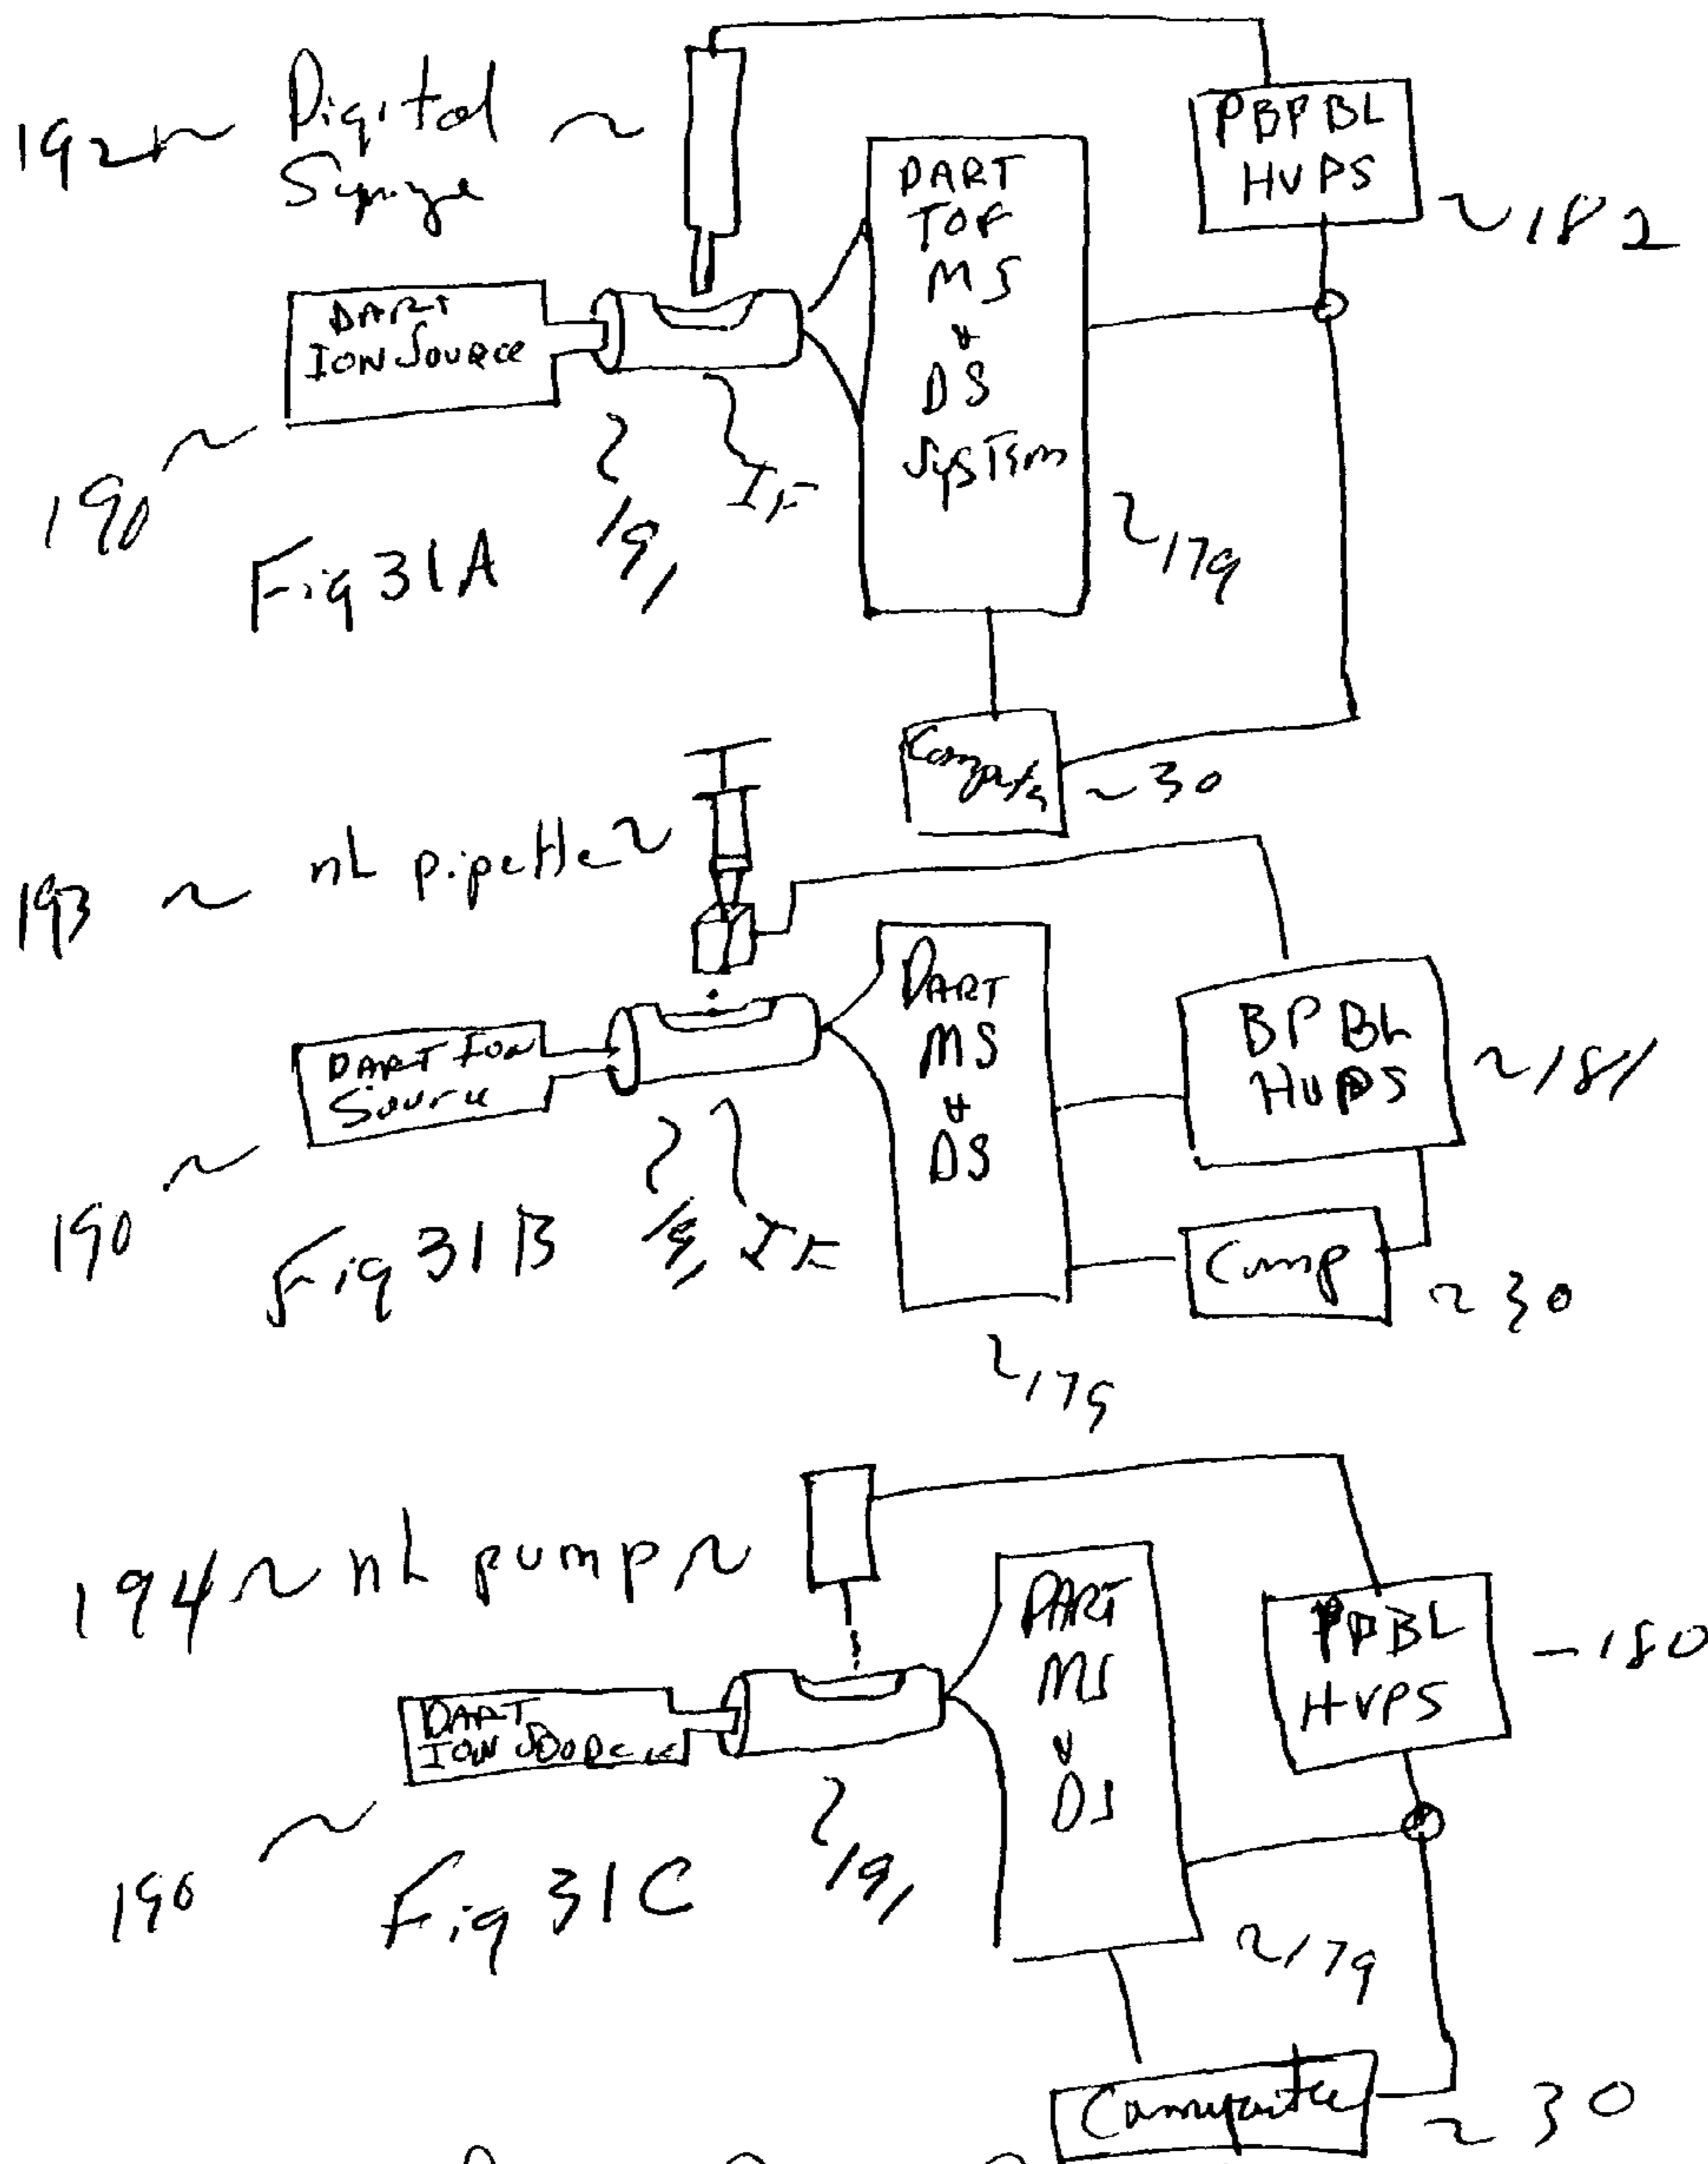 192 ~ Digital ~
Syringe
PBPBL
HVPS
~ 182
DART
TOF
MS
&
DS
System
DART
ION Source
190 ~
~ 191
IF
~ 179
Fig 31A
Computer
~ 30
193 ~ nL pipette ~
DART
MS
&
DS
BPBL
HVPS
~ 181
DART Ion
Source
190 ~
~ 191
IF
Fig 31B
Comp
~ 30
~ 179
194 ~ nL pump ~
DART
MS
&
DS
PPBL
HVPS
- 180
DART
ION SOURCE
190 ~
~ 191
Fig 31C
~ 179
Computer
~ 30